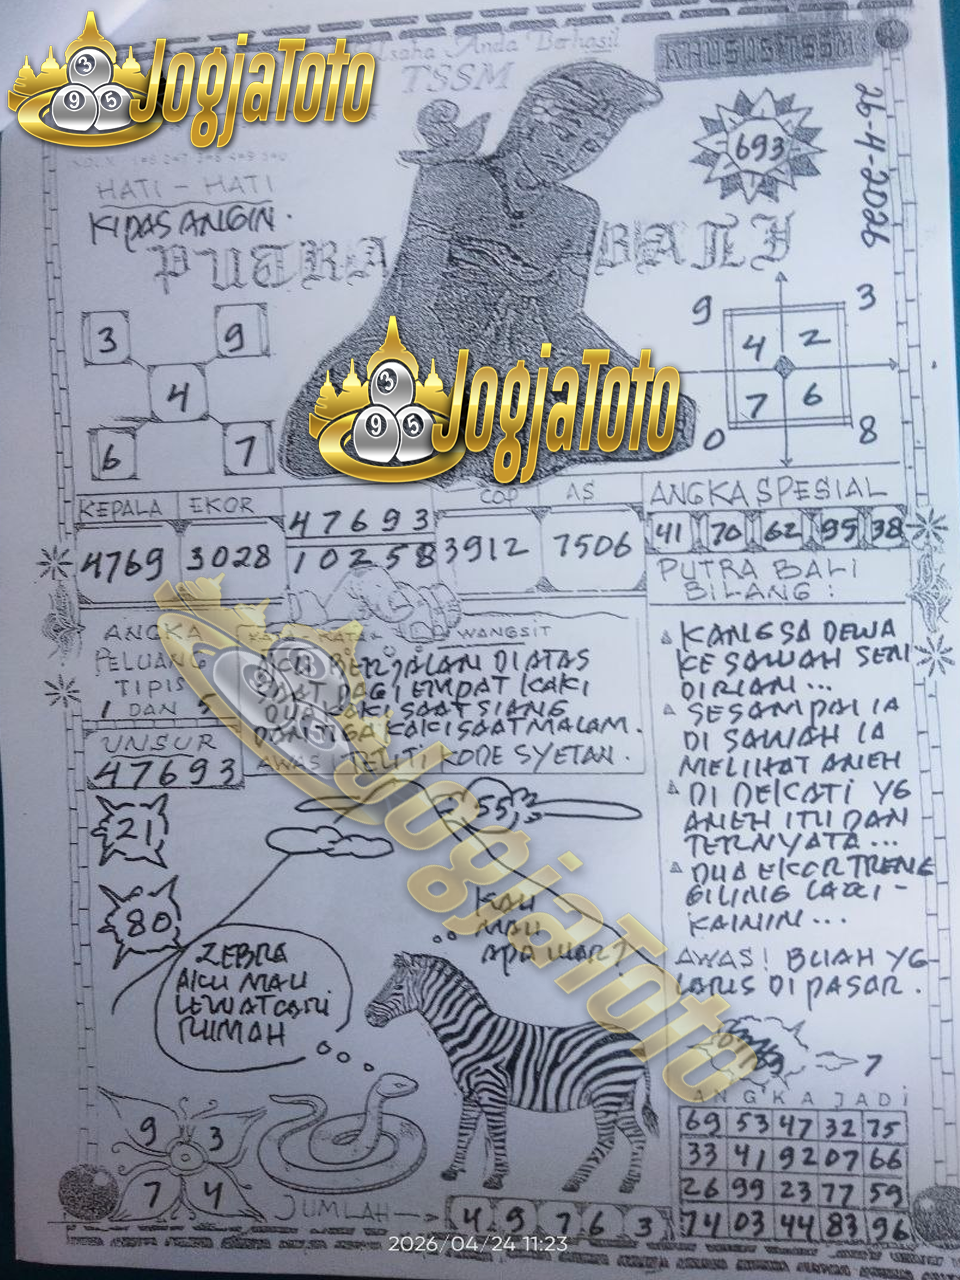 JogjaToto
Usaha Anda Berhasil
TSSM
KHUSUS TSSM
26-4-2026
693
HATI - HATI
KIPAS ANGIN.
PUTRA BALI
3 9
4
6 7
9 3
4 2
7 6
0 8
JogjaToto
KEPALA EKOR
4769 3028
47693
10258
COP AS
3912 7506
ANGKA SPESIAL
41 70 62 95 38
PUTRA BALI
BILANG :
ANGKA
PELUANG
TIPIS
1 DAN 5
KATA - KATA
WANGSIT
AKU BERJALAN DIATAS
SAAT PAGI EMPAT KAKI
DUA KAKI SAAT SIANG
DAN TIGA KAKI SAAT MALAM.
AWAS TELITI KODE SYETAN.
UNSUR
47693
KANGSA DEWA
KE SAWAH SEN
DIRIAN...
SESAMPAI IA
DI SAWAH IA
MELIHAT ANEH
DI DEKATI YG
ANEH ITU DAN
TERNYATA...
DUA EKOR TRENG
GILING LAGI -
KAWIN...
AWAS! BUAH YG
LARIS DI PASAR.
21
80
55
JogjaToto
KAU
MAU
APA WAR?
ZEBRA
AKU MAU
LEWAT CARI
RUMAH
7
ANGKA JADI
69 53 47 32 75
33 41 92 07 66
26 99 23 77 59
74 03 44 83 96
9 3
7 4
JUMLAH
4 9 7 6 3
2026/04/24 11:23